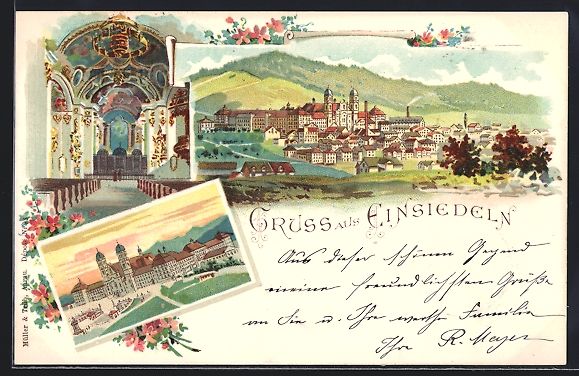 GRUSS AUS EINSIEDELN
Aus dieser schönen Gegend
meine freundlichsten Grüße
an Sie u. Ihre werthe Familie
Ihre R. Meyer
Müller & Trüb, Aarau.